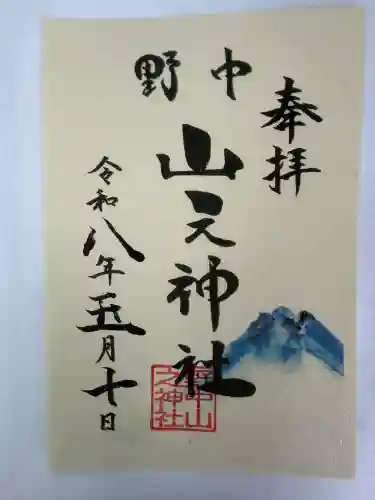 奉拝
野中
山之神社
令和八年五月十日
野中山之神社